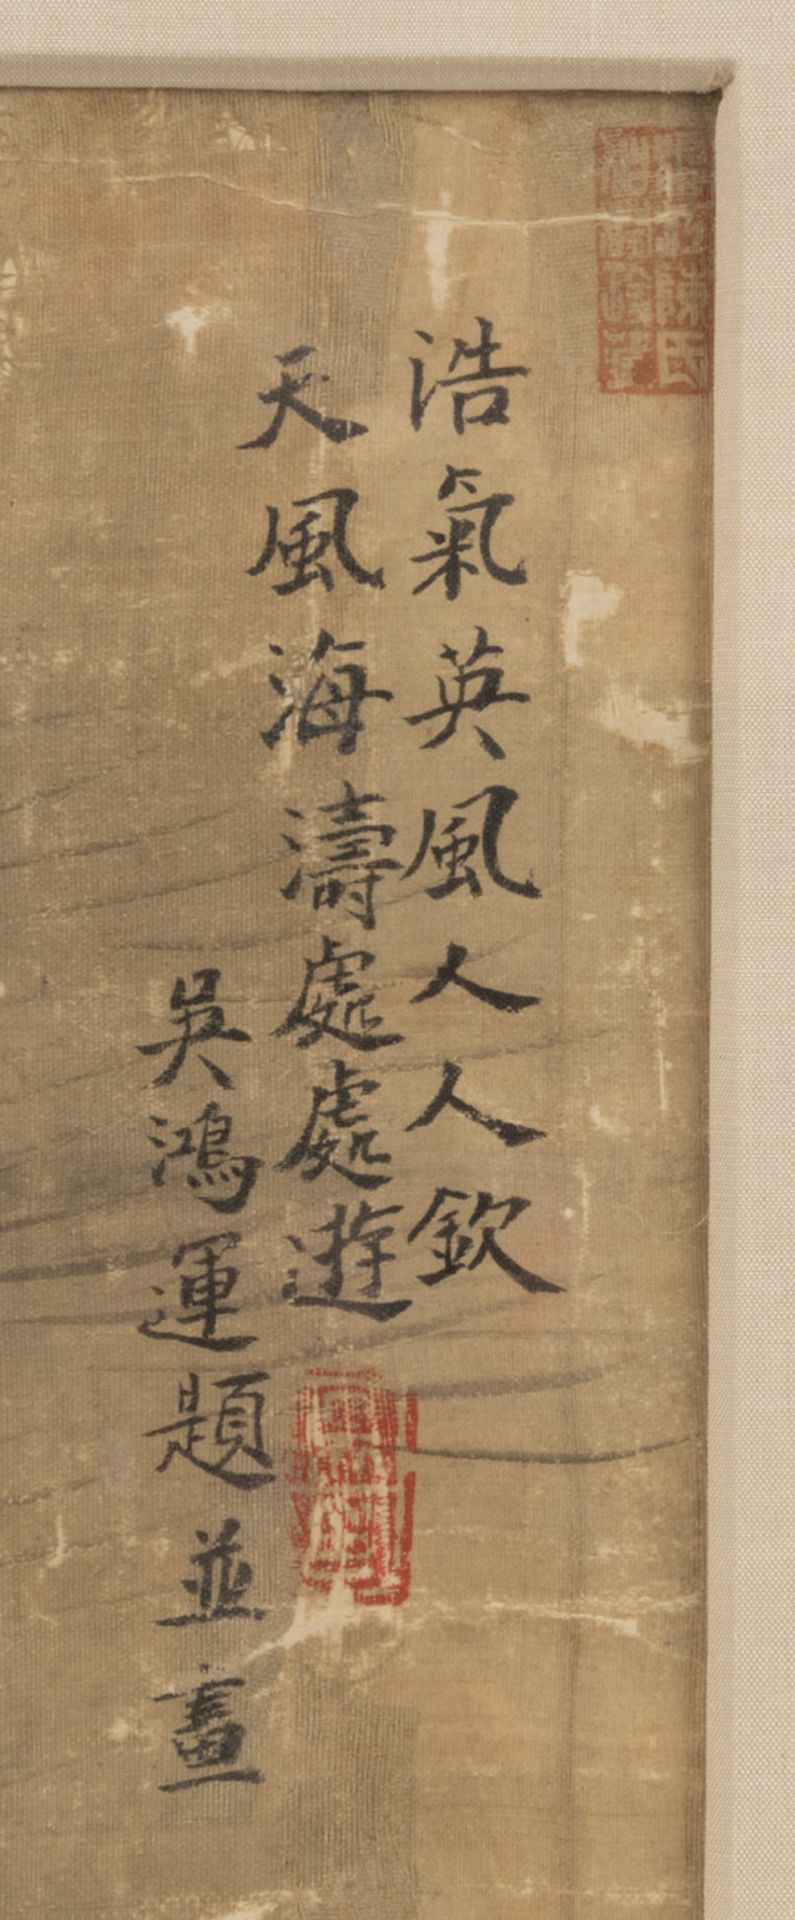 浩氣英風人人欽
天風海濤處處遊
吳鴻運題並畫